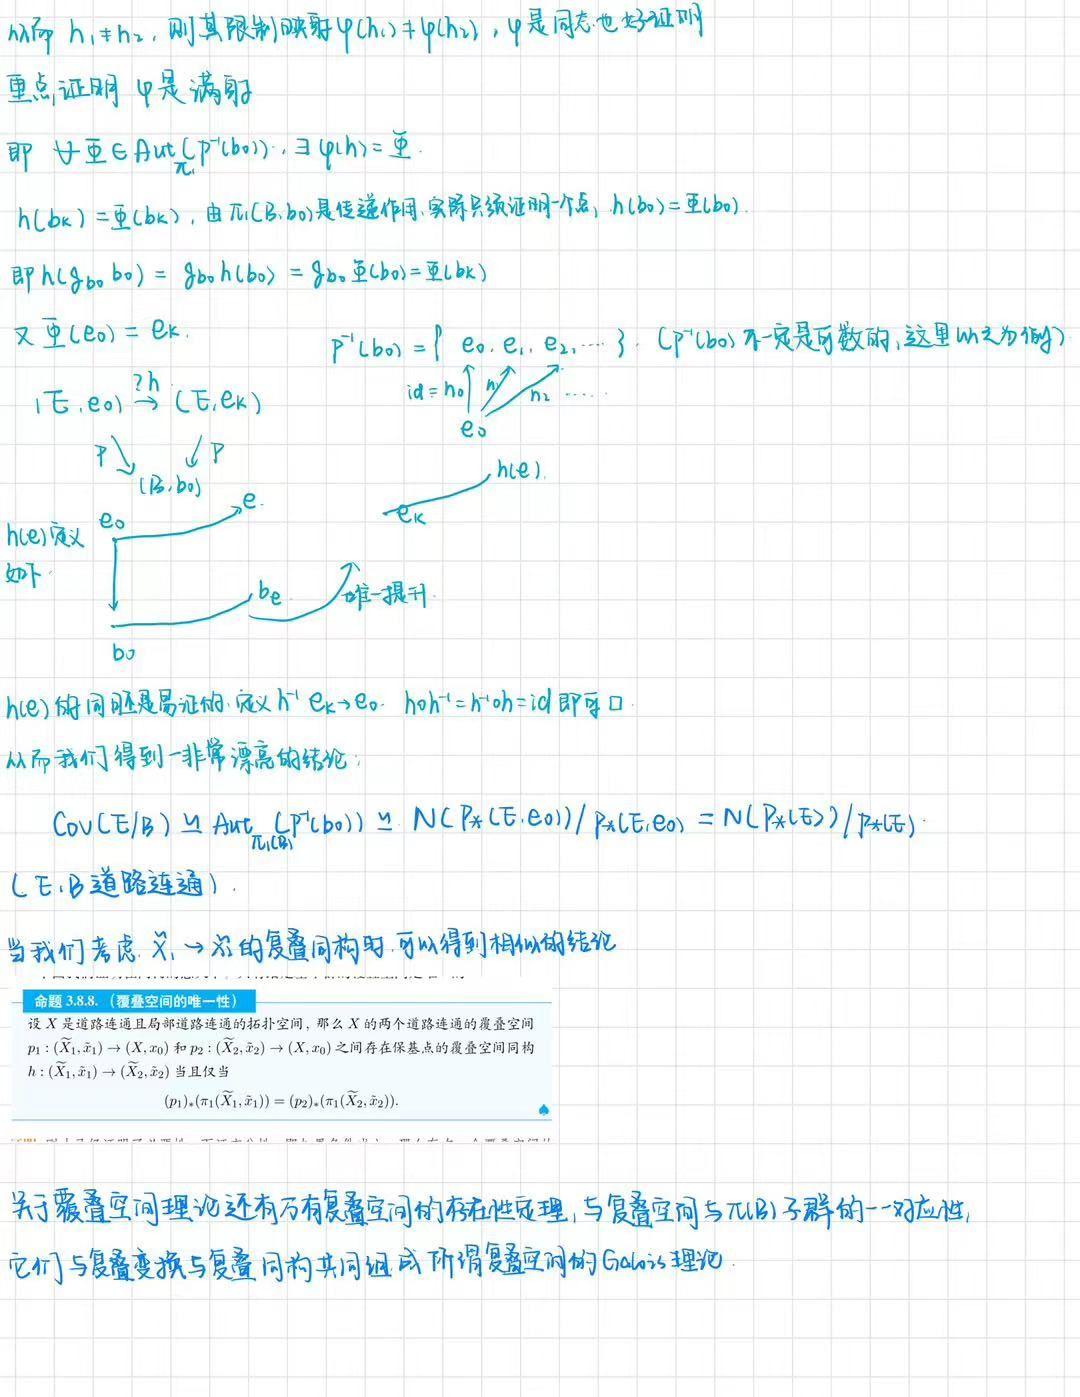 从而 h₁≠h₂，则其限制映射φ(h₁)≠φ(h₂)，φ是同态也好证明
重点证明 φ是满射
即 ∀Φ∈Aut_π₁(p⁻¹(b₀))，∃φ(h)=Φ.
h(bₖ)=Φ(bₖ)，由π₁(B,b₀)是传递作用，实际只须证明一个点，h(b₀)=Φ(b₀).
即h(g_b₀ b₀) = g_b₀ h(b₀) = g_b₀ Φ(b₀)=Φ(bₖ)
又Φ(e₀) = eₖ.
p⁻¹(b₀) = { e₀, e₁, e₂, ···· }. (p⁻¹(b₀)不一定是可数的，这里以之为例)
id=h₀ h₁ h₂ ·····
e₀
?h
(E,e₀) → (E,eₖ)
p p
(B,b₀)
h(e)定义
如下.
e₀ e.
eₖ h(e).
b₀ bₑ 唯一提升.
h(e)的同胚是易证的，定义h⁻¹ eₖ→e₀. h∘h⁻¹=h⁻¹∘h=id即可□.
从而我们得到一非常漂亮的结论:
Cov(E/B) ≌ Aut_π₁(B)(p⁻¹(b₀)) ≌ N(P*(E,e₀))/P*(E,e₀) = N(P*(E))/P*(E).
(E,B道路连通).
当我们考虑 X̃₁ → X̃₂的复叠同构时,可以得到相似的结论
命题 3.8.8. （覆叠空间的唯一性）
设 X 是道路连通且局部道路连通的拓扑空间，那么 X 的两个道路连通的覆叠空间
p₁ : (X̃₁, x̃₁) → (X, x₀) 和 p₂ : (X̃₂, x̃₂) → (X, x₀) 之间存在保基点的覆叠空间同构
h : (X̃₁, x̃₁) → (X̃₂, x̃₂) 当且仅当
(p₁)*(π₁(X̃₁, x̃₁)) = (p₂)*(π₁(X̃₂, x̃₂)).
关于覆叠空间理论还有万有复叠空间的存在性定理，与复叠空间与π(B)子群的一一对应性，
它们与复叠变换与复叠同构共同组成所谓复叠空间的Galois理论.